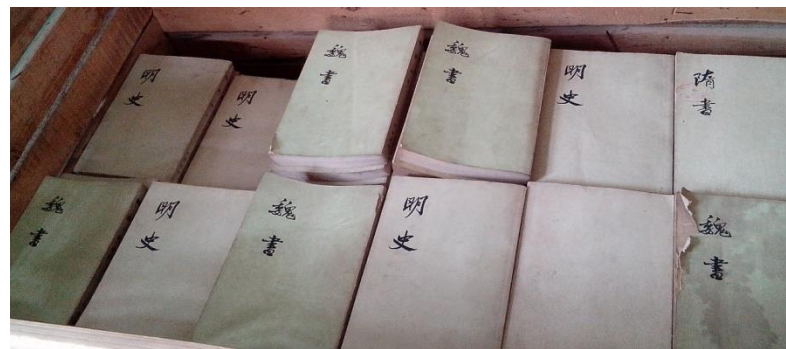 明史
明史
魏書
魏書
明史
隋書
魏書
明史
魏書
明史
魏書